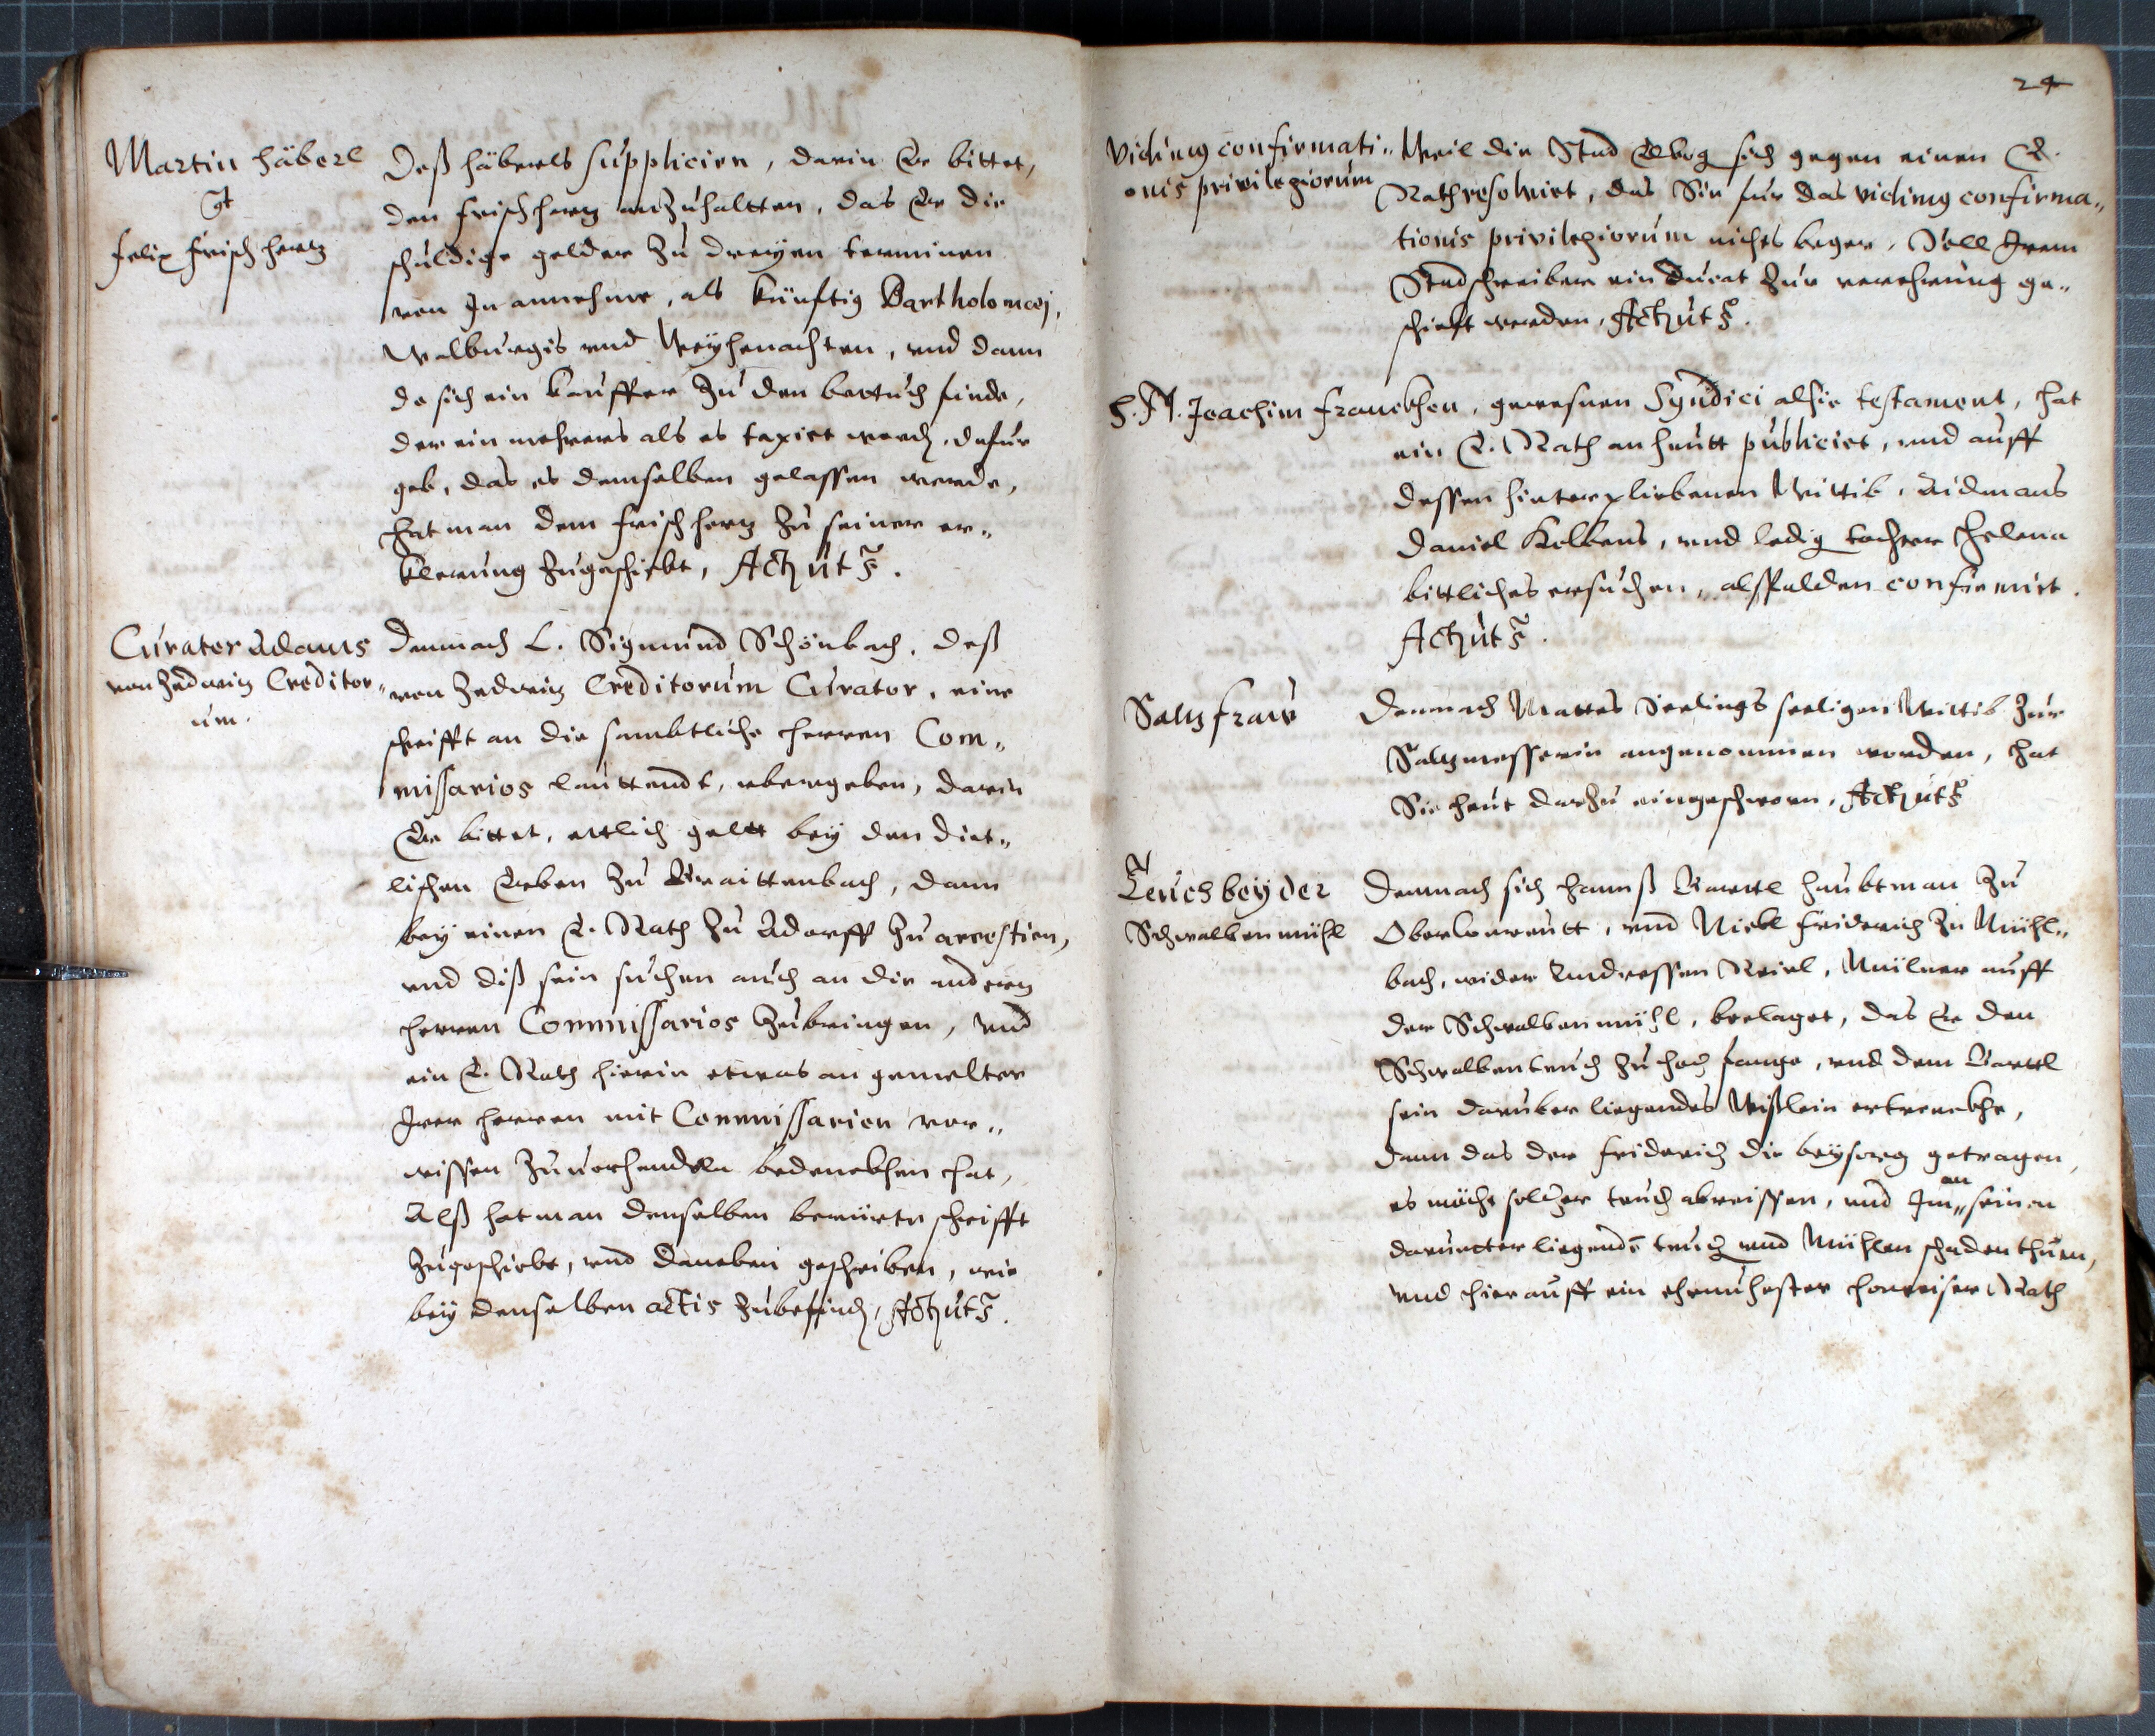 Martin Häberl
gt
Felix Frischhertz
Deß Häberls supplicirn, darin Er bittet,
den Frischhertz anzuhaltten, das Er die
schuldige gelder zu dreyen terminen
von Jm annehme, als künfftig Bartholomæj,
Walburgis und Weyhenachten, und dann
do sich ein kauffer zu den finde,
der ein mehrers als es taxirt werd, dafur
geb, das es demselben gelassen werde,
hat man dem Frischhertz zu seiner er„
klerung zugeschickt, Act. ut s.
Curator Adams
von Zedwitz Creditor„
um.
Demnach L. Sigmund Schönbach, deß
von Zedwitz Creditorum Curator, eine
schrifft an die sambtliche herren Com„
missarios lauttendt, ubergeben, darin
Er bittet, ettlich geltt bey den Diet„
lischen Erben zu Braittenbach, dann
bey einen E. Rath zu Adorff zu arrestirn,
und diß sein suchen auch an die andern
herren Commissarios zubringen, und
ein E. Rath hierin etwas an gemelter
Jrer herren mit Commissarien vor„
wissen zuverhandeln bedenckhen hat,
Alß hat man denselben berürte schrifft
zugeschickt, und daneben geschriben, wie
bey denselben actis zubefind, Act. ut s.
24
Vidimus confirmati„
onis privilegiorum
Weil die Stad Elbog sich gegen einen E.
Rath resolvirt, das Sie fur das vidimus confirma„
tionis privilegiorum nichts beger, Soll Jrem
Stadschreiber ein Ducat zur verehrung ge„
schickt werden, Act. ut s.
H. M. Joachim Franckhen, gewesnen Syndici alhie testament, hat
ein E. Rath an heutt publicirt, und auff
dessen hinterpliebenen Wittib, Aidmans
Daniel Kolbens, und ledig tochter Helena
bittliches ersuchen, alßbalden confirmirt.
Act. ut s.
Saltzfraw
Demnach Mattes Seelings seeligen Wittib zur
Saltzmesserin angenommen worden, hat
Sie heut darzu eingeschworn, Act. ut s.
Teuch bey der
Schwalbenmühl
Demnach sich Hannß Bartl haubtman zu
Oberlomreutt, und Nickl Friderich zu Mühl„
bach, wider Andressen Reisl, Mülner auff
der Schwalbenmühl, beclaget, das Er den
Schwalbenteuch zu hoch fange, und dem Bartl
sein daruber liegendes Wißlein ertrenckhe,
dann das der Friderich die beysorg getragen,
es möcht solcher teuch abreissen, und Jm„ an seinen
darunter liegende teuch und Mühlen schaden thuen,
und hierauff ein ehrnuhester hochweiser Rath